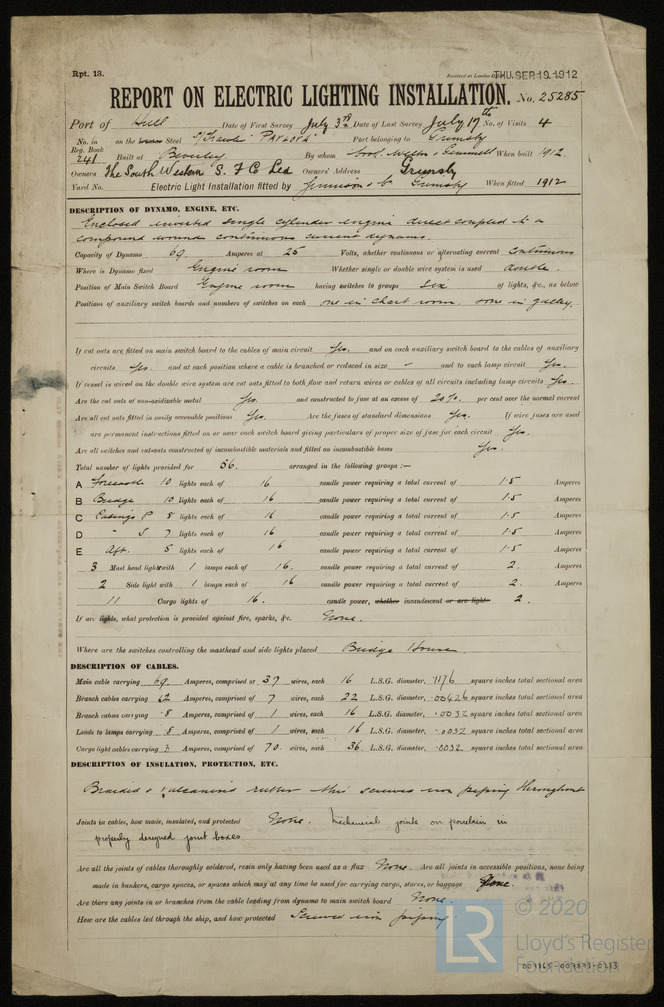 Rpt. 13.
Received at London THU. SEP. 19. 1912
REPORT ON ELECTRIC LIGHTING INSTALLATION. No. 25285
Port of Hull Date of First Survey July 3rd Date of Last Survey July 17th No. of Visits 4
No. in Reg. Book 241 on the Steel S/Trawler "Paxlova" Port belonging to Grimsby
Built at Beverley By whom Cook, Welton & Gemmell When built 1912.
Owners The South Western S. F. C Ltd Owners' Address Grimsby
Yard No. Electric Light Installation fitted by Grimsby When fitted 1912
DESCRIPTION OF DYNAMO, ENGINE, ETC.
Enclosed inverted single cylinder engine direct coupled to a
compound wound continuous current dynamo.
Capacity of Dynamo 69 Amperes at 25 Volts, whether continuous or alternating current Continuous
Where is Dynamo fixed Engine room Whether single or double wire system is used double.
Position of Main Switch Board Engine room having switches to groups Six of lights, &c., as below
Positions of auxiliary switch boards and numbers of switches on each one in chart room, one in galley.
If cut outs are fitted on main switch board to the cables of main circuit Yes. and on each auxiliary switch board to the cables of auxiliary
circuits Yes. and at each position where a cable is branched or reduced in size - and to each lamp circuit Yes.
If vessel is wired on the double wire system are cut outs fitted to both flow and return wires or cables of all circuits including lamp circuits Yes.
Are the cut outs of non-oxidizable metal Yes. and constructed to fuse at an excess of 20%. per cent over the normal current
Are all cut outs fitted in easily accessible positions Yes. Are the fuses of standard dimensions Yes. If wire fuses are used
are permanent instructions fitted on or near each switch board giving particulars of proper size of fuse for each circuit Yes.
Are all switches and cut-outs constructed of incombustible materials and fitted on incombustible bases Yes.
Total number of lights provided for 56. arranged in the following groups :—
A Forecastle 10 lights each of 16 candle power requiring a total current of 1·5 Amperes
B Bridge 10 lights each of 16 candle power requiring a total current of 1·5 Amperes
C Casings P 8 lights each of 16 candle power requiring a total current of 1·5 Amperes
D " S 7 lights each of 16 candle power requiring a total current of 1·5 Amperes
E Aft. 5 lights each of 16 candle power requiring a total current of 1·5 Amperes
3 Mast head light with 1 lamps each of 16. candle power requiring a total current of 2. Amperes
2 Side light with 1 lamps each of 16 candle power requiring a total current of 2. Amperes
11 Cargo lights of 16. candle power, whether incandescent or arc lights 2.
If arc lights, what protection is provided against fire, sparks, &c. None.
Where are the switches controlling the masthead and side lights placed Bridge House.
DESCRIPTION OF CABLES.
Main cable carrying 69. Amperes, comprised of 37 wires, each 16 L.S.G. diameter, ·1176 square inches total sectional area
Branch cables carrying 62 Amperes, comprised of 7 wires, each 22 L.S.G. diameter, ·00426 square inches total sectional area
Branch cables carrying ·8 Amperes, comprised of 1 wires, each 16 L.S.G. diameter, ·0032 square inches total sectional area
Leads to lamps carrying ·8 Amperes, comprised of 1 wires, each 16 L.S.G. diameter, ·0032 square inches total sectional area
Cargo light cables carrying 3 Amperes, comprised of 70. wires, each 36 L.S.G. diameter, ·0032. square inches total sectional area
DESCRIPTION OF INSULATION, PROTECTION, ETC.
Braided & vulcanised rubber thro screwed iron piping throughout
Joints in cables, how made, insulated, and protected None. Mechanical joints on porcelain in
properly designed joint boxes
Are all the joints of cables thoroughly soldered, resin only having been used as a flux None. Are all joints in accessible positions, none being
made in bunkers, cargo spaces, or spaces which may at any time be used for carrying cargo, stores, or baggage None.
Are there any joints in or branches from the cable leading from dynamo to main switch board None.
How are the cables led through the ship, and how protected Screwed iron piping.
© 2020
LR Lloyd's Register
Foundation